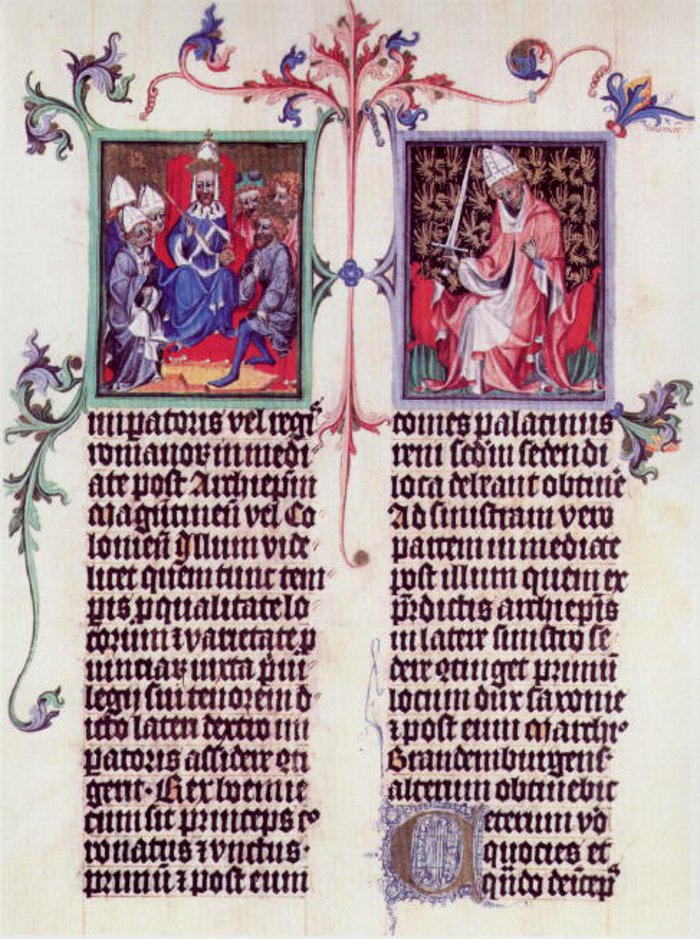 imꝑatoris vel regꝭ
romanoꝝ immedi
ate post Archiepm̄
maguntineñ vel Co
lonieñ Illum vide
licet quem tunc tem
ꝑis ꝓ qualitate lo
corum ⁊ varietate ꝓ
uinciaꝝ iuxta p̄uile
legij sui tenorem in d
icto lateri dextro im
ꝑatoris assidere ꝯti
gerit· Rex boemie
cum sit princeps co
ronatus ⁊ vnctus·
primū ⁊ post eum
comes palatinus
reni scdm̄ sedendi
loca debeant obtinē
Ad sinistram vero
partem immediate
post illum quem ex
p̄dictis archiep̄is
in latere sinistro se
dere ꝯtinget primū
locum dux saxonie
⁊ post eum marchio
Brandemburgens·
alterum obtinebit
Ceterum vō
quocies et
qn̄do deīcep̄